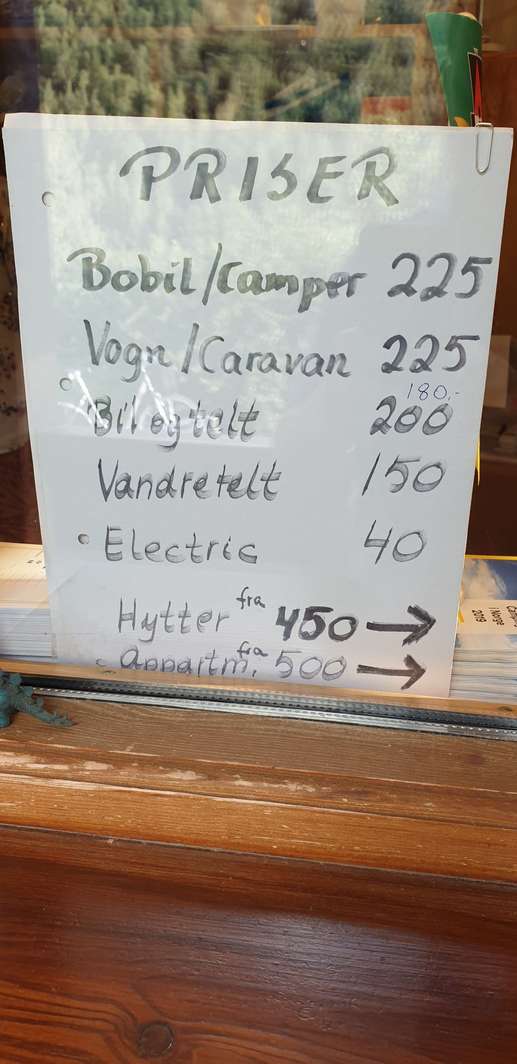 PRISER
Bobil/Camper 225
Vogn/Caravan 225
180,-
Bil og telt 200
Vandretelt 150
Electric 40
Hytter fra 450 →
appartm. fra 500 →
i Norge
2019